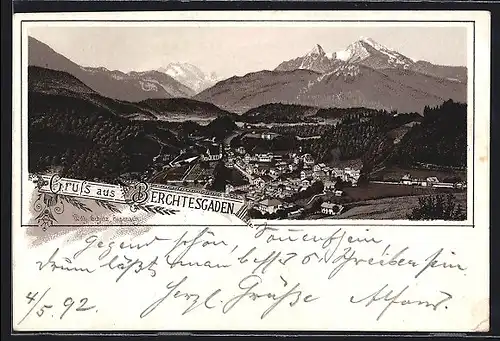 Gruß aus Berchtesgaden.
Gegend schön, Touren fein,
drum läßt man bess's Schreiben sein
4/5. 92. Herzl. Grüße Alfons.